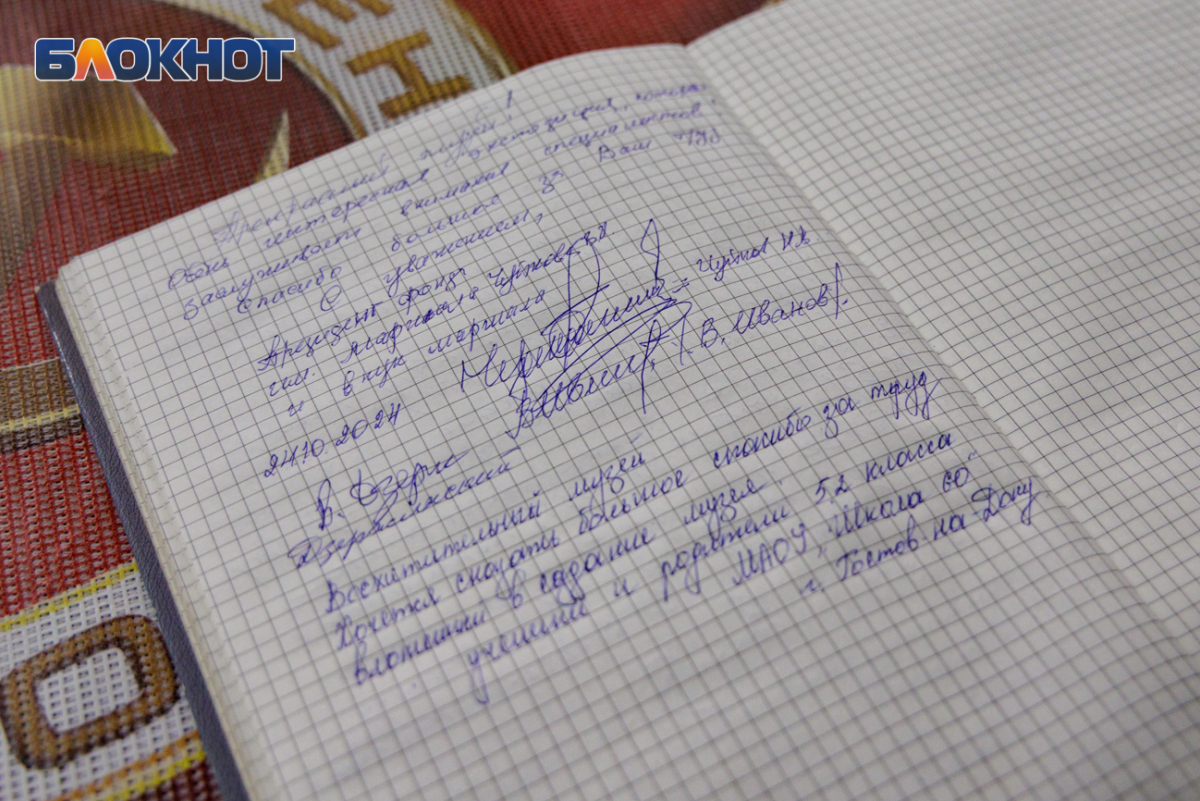 БЛОКНОТ
ЕН
О
Прекрасный музей!
Очень интересная экспозиция, которая
заслуживает внимания специалистов
Спасибо большое за Ваш труд
С уважением,
Президент фонда
им. маршала Чуйкова
и внук маршала
24.10.2024
В. Иванов/.
В.
Дзержинский
Восхитительный музей
Хочется сказать большое спасибо за труд
вложенный в создание музея.
ученики и родители 52 класса
МАОУ "Школа 60"
г. Ростов-на-Дону